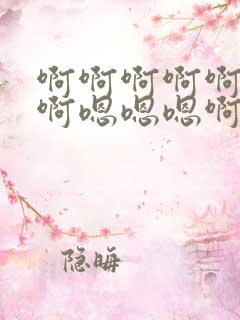 啊啊啊啊啊
啊嗯嗯嗯啊
隐晦